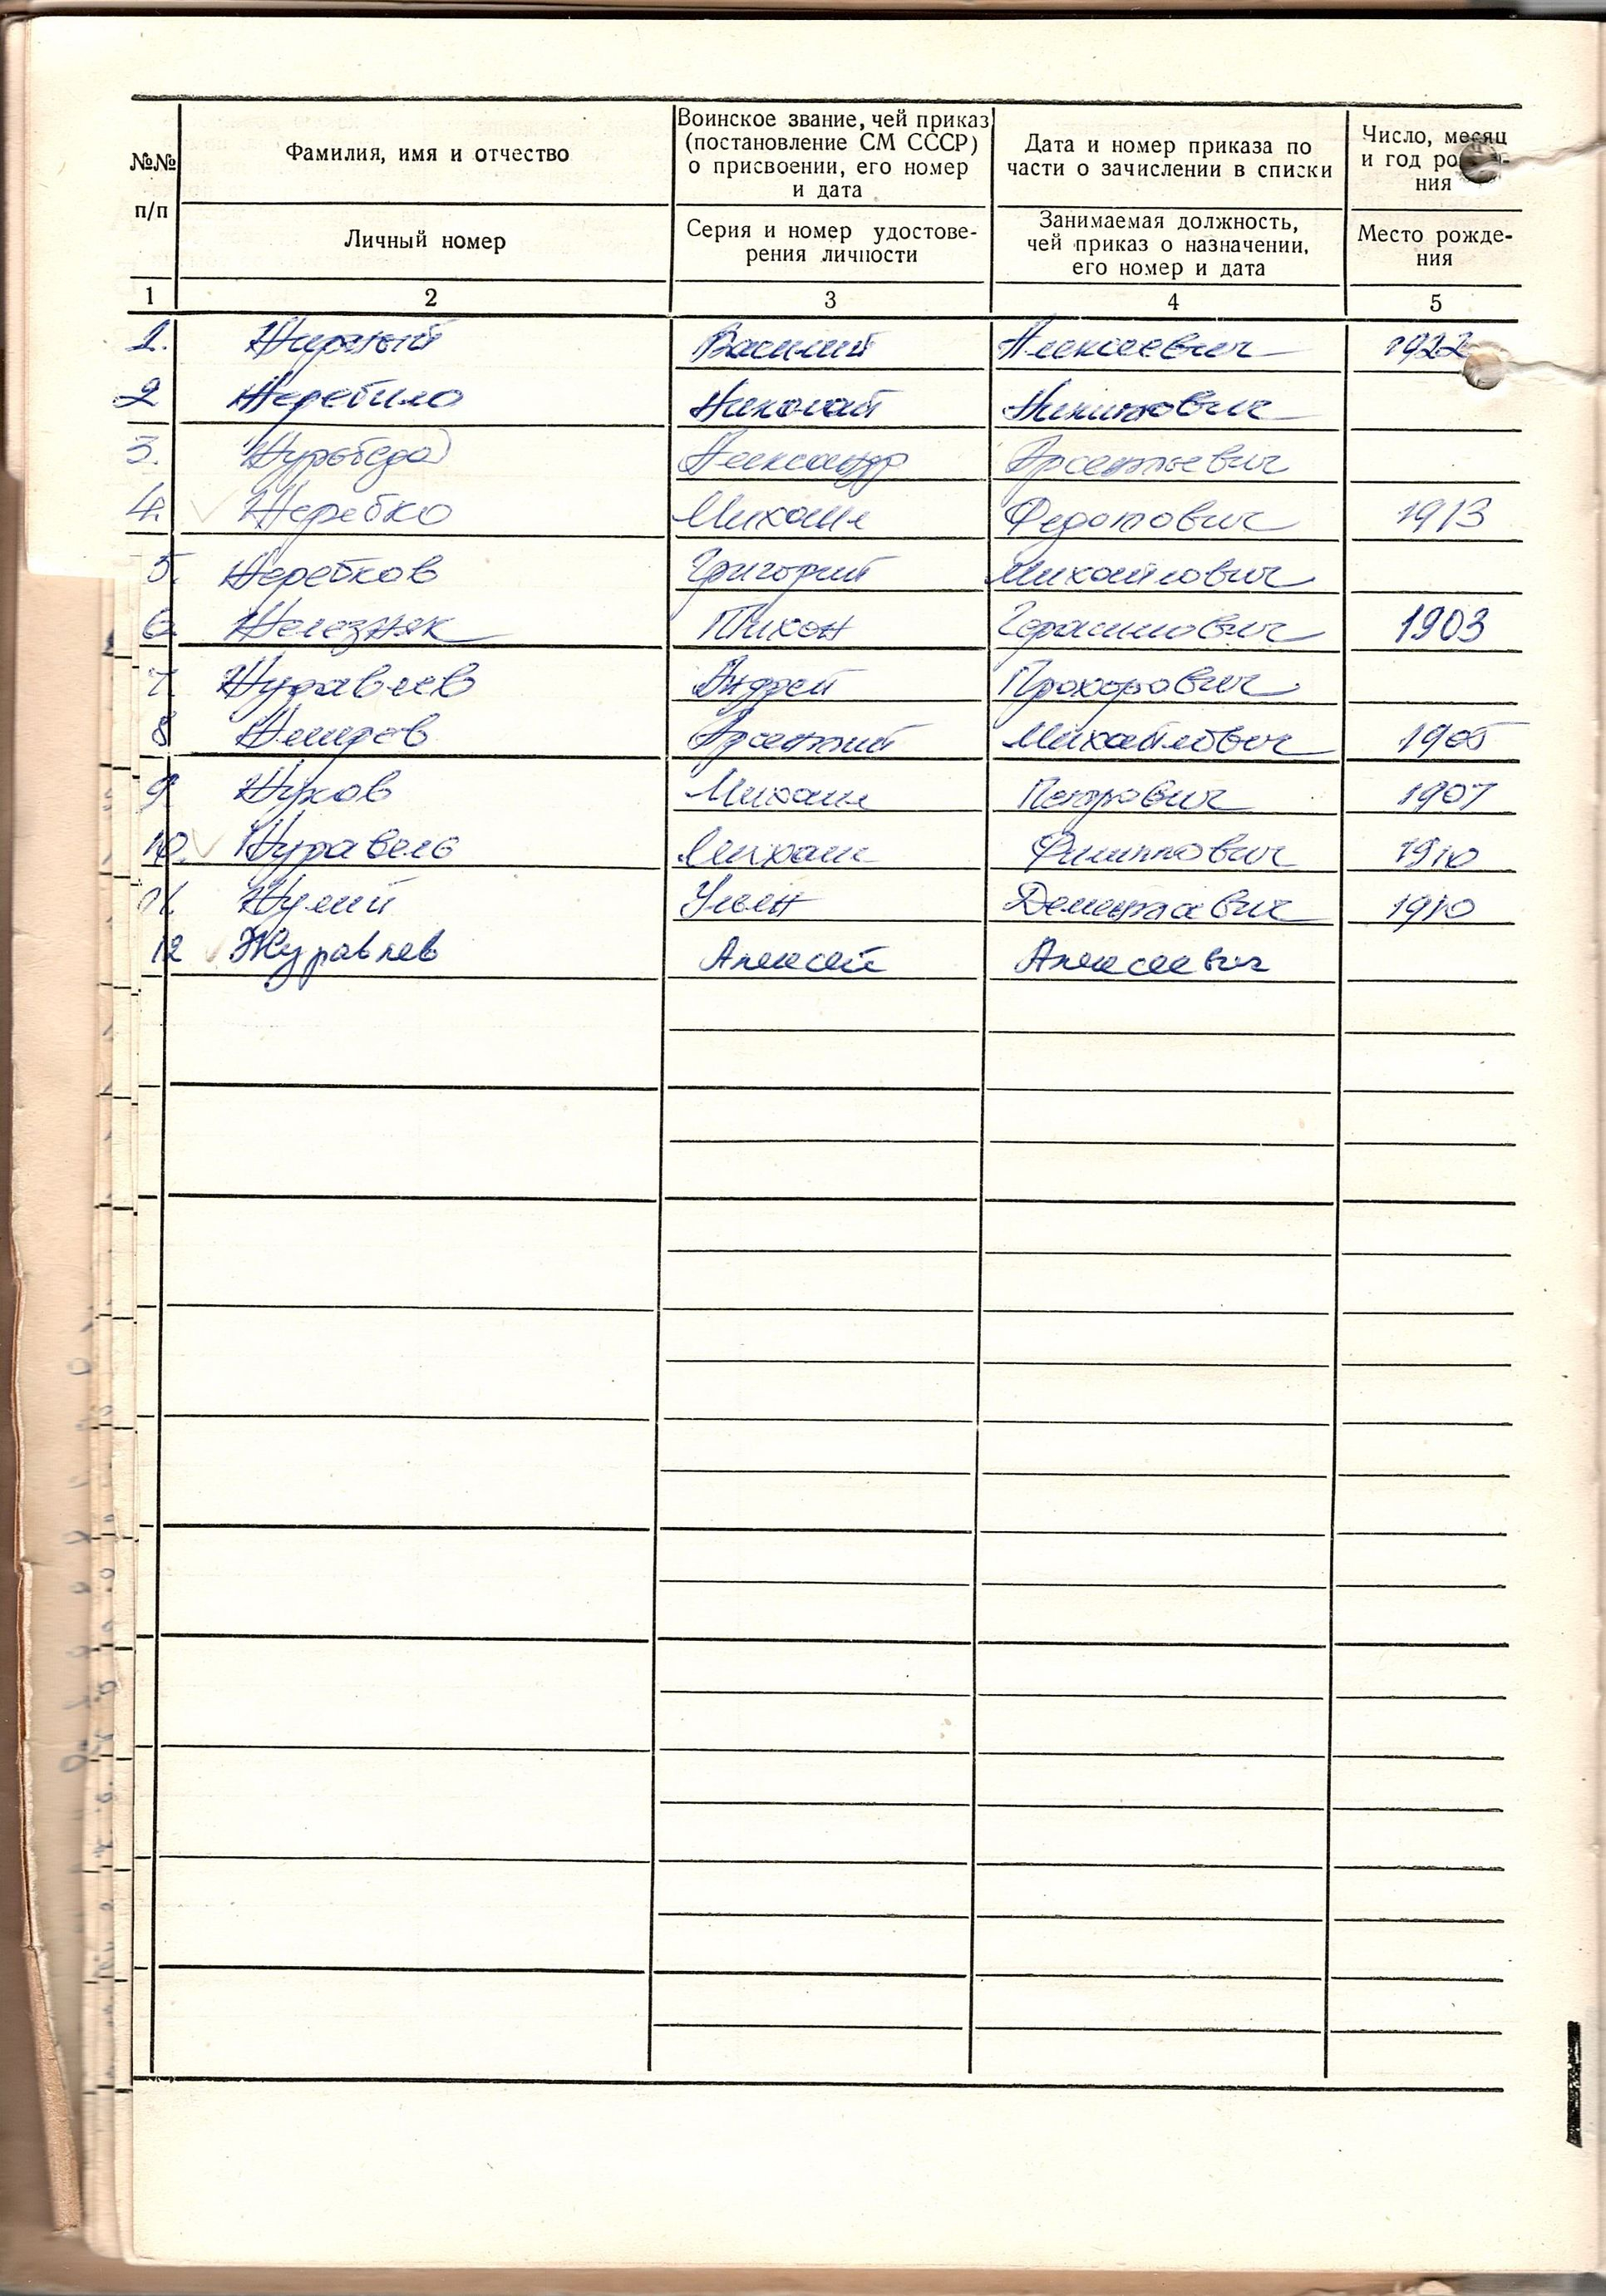 №№ п/п
Фамилия, имя и отчество
Личный номер
Воинское звание, чей приказ
(постановление СМ СССР)
о присвоении, его номер
и дата
Серия и номер удостове-
рения личности
Дата и номер приказа по
части о зачислении в списки
Занимаемая должность,
чей приказ о назначении,
его номер и дата
Число, месяц
и год рожде-
ния
Место рожде-
ния
1 2 3 4 5
1. Василий Алексеевич 1922
2 Жеребило Николай Никитович
3. Журобеда Александр Арсентьевич
4. Жеребко Михаил Федотович 1913
5. Жеребков Григорий Михайлович
6. Железняк Тихон Герасимович 1903
7. Журавлев Андрей Прохорович
8 Арсентий Михайлович 1905
9 Жуков Михаил Петрович 1907
10. Журавель Михаил Филиппович 1910
11. Ульян Дементьевич 1910
12 Журавлев Алексей Алексеевич